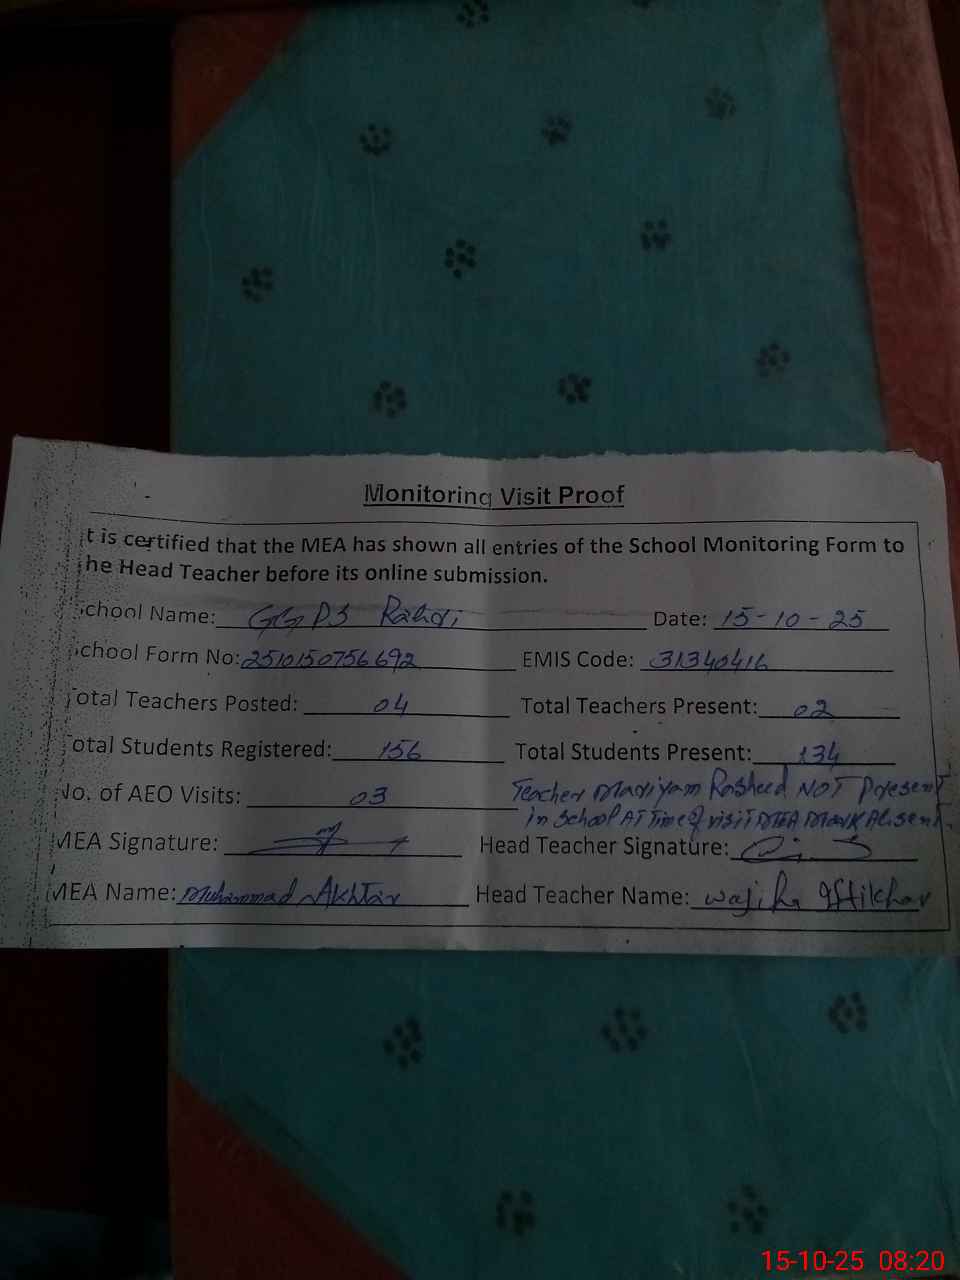 Monitoring Visit Proof
t is certified that the MEA has shown all entries of the School Monitoring Form to
he Head Teacher before its online submission.
chool Name: GGPS Rahdi Date: 15-10-25
chool Form No: 2510150756692 EMIS Code: 31340416
otal Teachers Posted: 04 Total Teachers Present: 02
otal Students Registered: 156 Total Students Present: 134
No. of AEO Visits: 03 Teacher Mariyam Rasheed NOT Present
in School AT Time of visit MEA Mark Absent.
MEA Signature: Head Teacher Signature:
MEA Name: Muhammad Akhtar Head Teacher Name: Wajiha Iftikhar
15-10-25 08:20